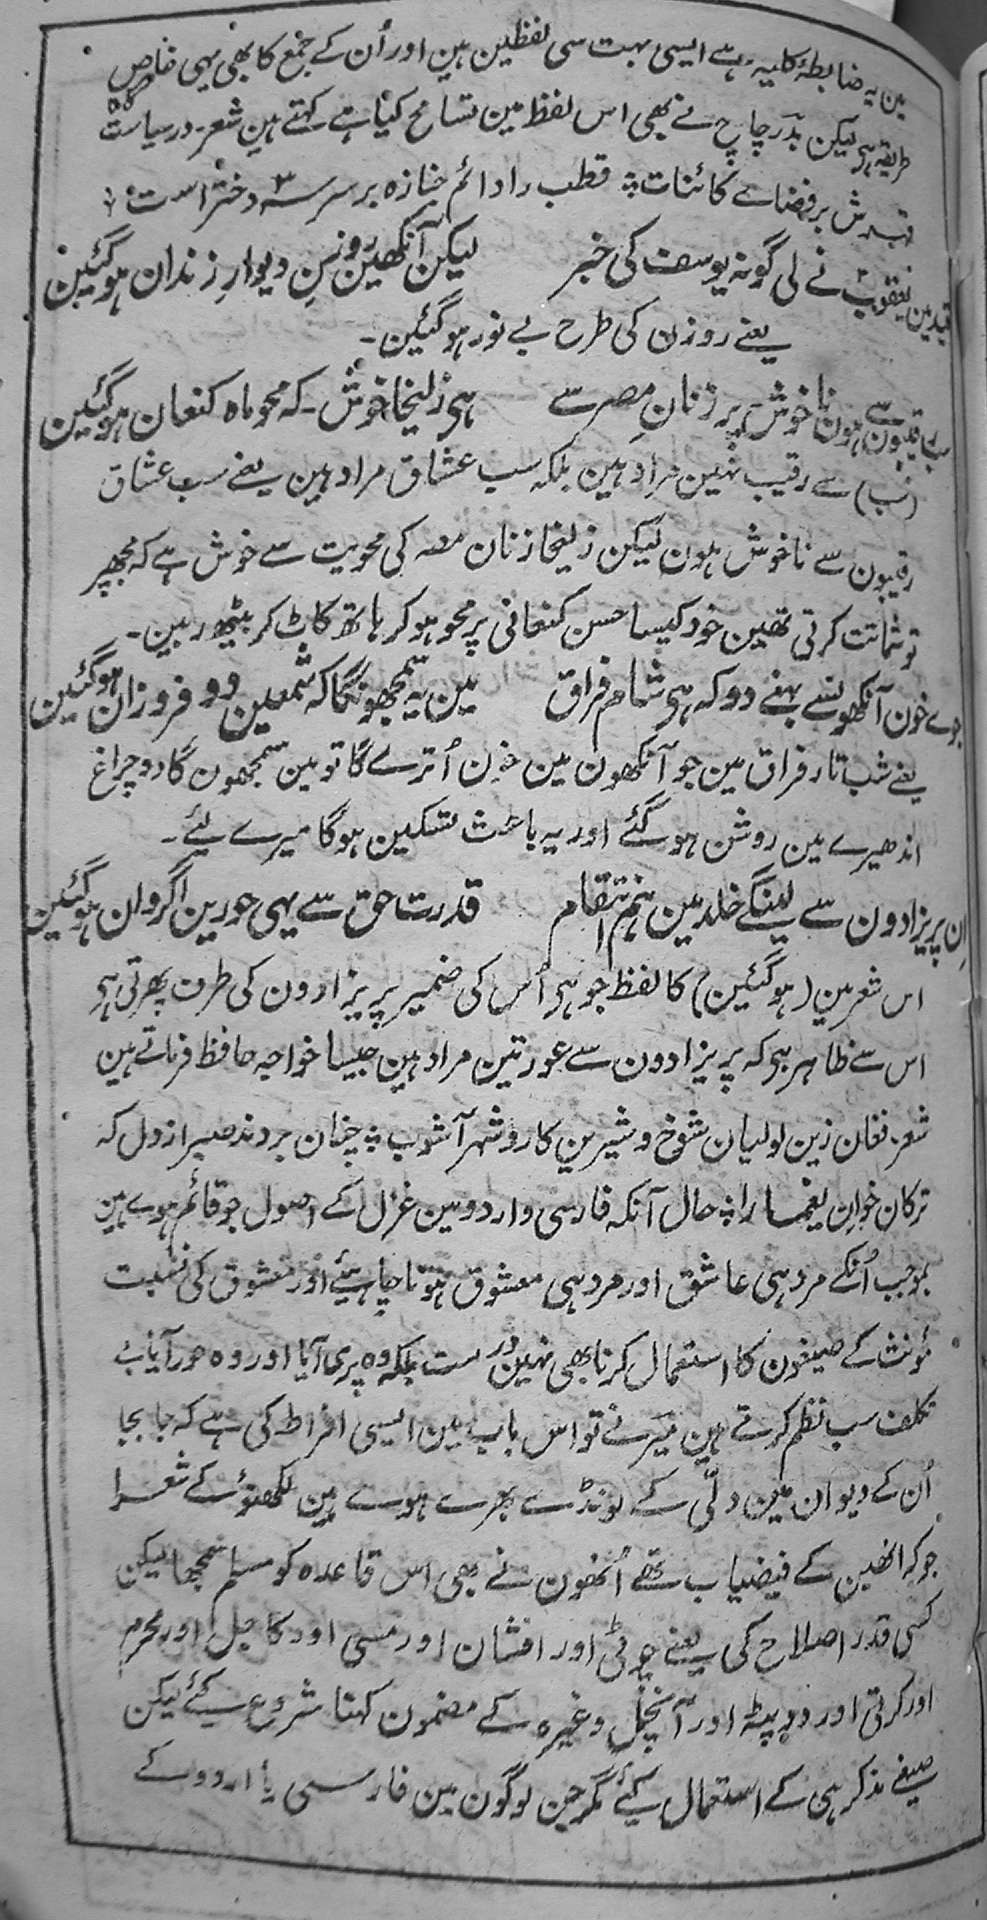 مین یہ ضابطۂ کلیہ ہے ایسی بہت سی لفظین ہین اور اُن کے جمع کا بھی یہی خاص
طریقہ ہی لیکن بدر چاچ نے بھی اس لفظ مین تسامح کیا ہے کہتے ہین شعر۔ در سیاست گاہ
قہرش بر فضائے کائنات ؞ قطب را دائم جنازہ بر سر سہ دختر است ؞
قید مین یعقوب نے لی گو نہ یوسف کی خبر لیکن آنکھین روزنِ دیوارِ زندان ہو گئین
یعنے روزن کی طرح بے نور ہو گئین۔
سب رقیبون سے ہون ناخوش پر زنانِ مصر سے ہی زلیخا خوش۔ کہ محو ماہ کنعان ہو گئین
(سب) سے رقیب نہین مراد ہین بلکہ سب عشاق مراد ہین یعنے سب عشاق
رقیبون سے ناخوش ہون لیکن زلیخا زنان مصر کی محویت سے خوش ہے کہ مجھپر
تو شماتت کرتی تھین خود کیسا حسن کنعانی پر محو ہو کر ہاتھ کاٹ کر بیٹھ رہین۔
جوے خون آنکھونسے بہنے دو کہ ہی شام فراق مین یہ سمجھونگا کہ شمعین دو فروزان ہو گئین
یعنے شب تار فراق مین جو آنکھون مین خون اُترے گا تو مین سمجھون گا دو چراغ
اندھیرے مین روشن ہو گئے اور یہ باعث تسکین ہو گا میرے لیے۔
اِن پریزادون سے لینگے خلد مین ہم انتقام قدرت حق سے یہی حورین اگر وان ہو گئین
اس شعر مین (ہو گئین) کا لفظ جو ہی اُس کی ضمیر پریزادون کی طرف پھرتی ہی
اس سے ظاہر ہی کہ پریزادون سے عورتین مراد ہین جیسا خواجہ حافظ فرماتے ہین
شعر۔ فغان زین لولیان شوخ و شیرین کار و شہر آشوب ؞ چنان بردند صبر از دل کہ
ترکان خوان یغما را ؞ حال آنکہ فارسی و اردو مین غزل کے اصول جو قائم ہوے ہین
بموجب اُنکے مرد ہی عاشق اور مرد ہی معشوق ہونا چاہیئے اور معشوق کی نسبت
مؤنث کے صیغون کا استعمال کرنا بھی نہین درست بلکہ وہ پری آیا اور وہ حور آیا بے
تکلف سب نظم کرتے ہین میر نے تو اس باب مین ایسی افراط کی ہے کہ جا بجا
اُن کے دیوان مین دلّی کے لونڈے بھرے ہوے ہین لکھنؤ کے شعرا
جو کہ انھین کے فیضیاب تھے اُنھون نے بھی اس قاعدہ کو مسلم سمجھا لیکن
کسی قدر اصلاح کی یعنے چوٹی اور افشان اور مسی اور کاجل اور محرم
اور کرتی اور دوپٹہ اور آنچل وغیرہ کے مضمون کہنا شروع کیئے لیکن
صیغے مذکر ہی کے استعمال کیئے مگر جن لوگون مین فارسی یا اردو کے